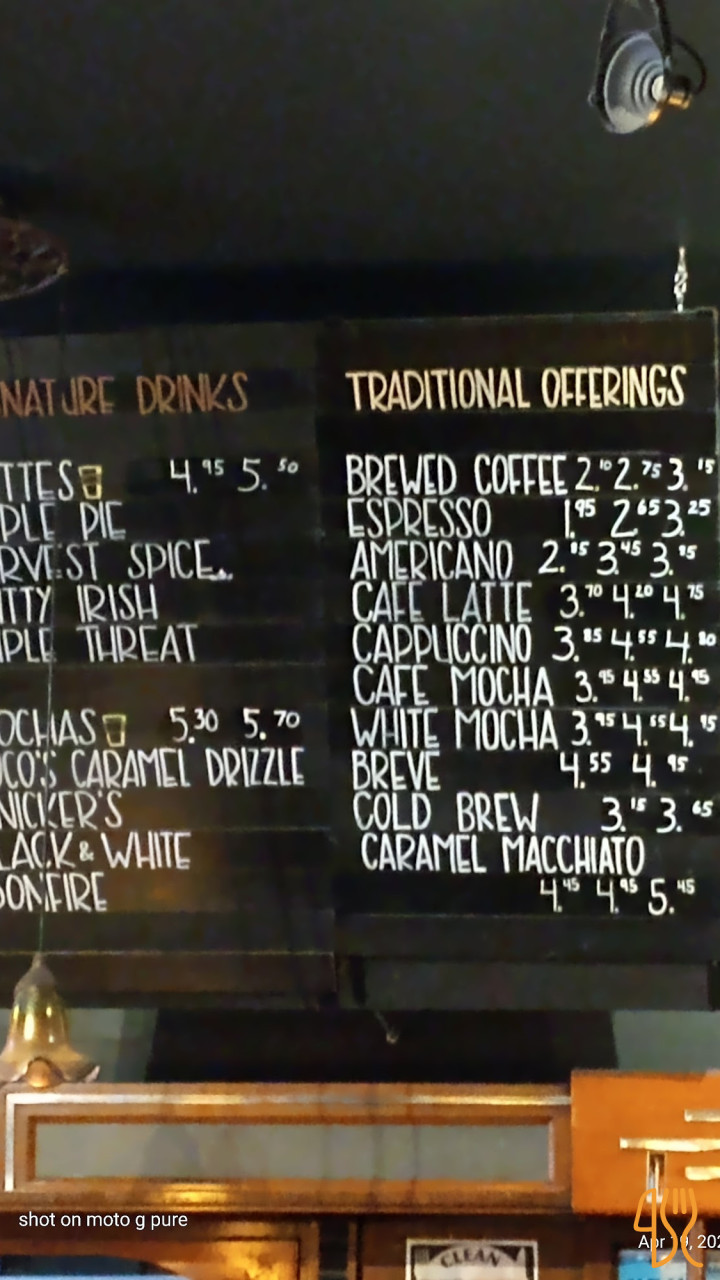 NATURE DRINKS
TTES 4.95 5.50
PLE PIE
RVEST SPICE
TTY IRISH
IPLE THREAT
OCHAS 5.30 5.70
CO'S CARAMEL DRIZZLE
NICKER'S
LACK & WHITE
BONFIRE
TRADITIONAL OFFERINGS
BREWED COFFEE 2.10 2.75 3.15
ESPRESSO 1.95 2.65 3.25
AMERICANO 3.45
CAFE LATTE 3.70 4.20 4.75
CAPPUCCINO 3.85 4.55 4.80
CAFE MOCHA 3.95 4.55 4.95
WHITE MOCHA 3.95 4.55 4.95
BREVE 4.55 4.95
COLD BREW 3.15 3.65
CARAMEL MACCHIATO
4.45 4.95 5.45
CLEAN
shot on moto g pure
Apr